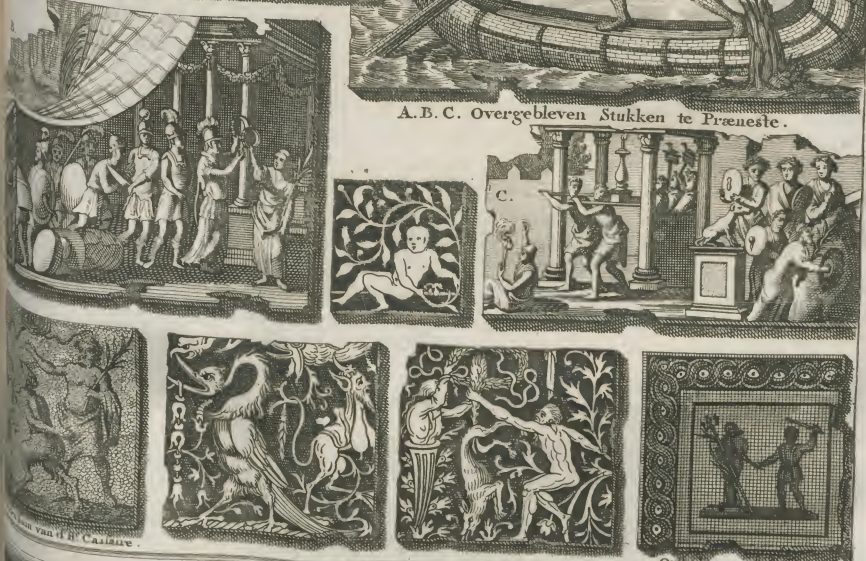 B.
A.B.C. Overgebleven Stukken te Præneste.
C.
van d'Hr. Cassaire.